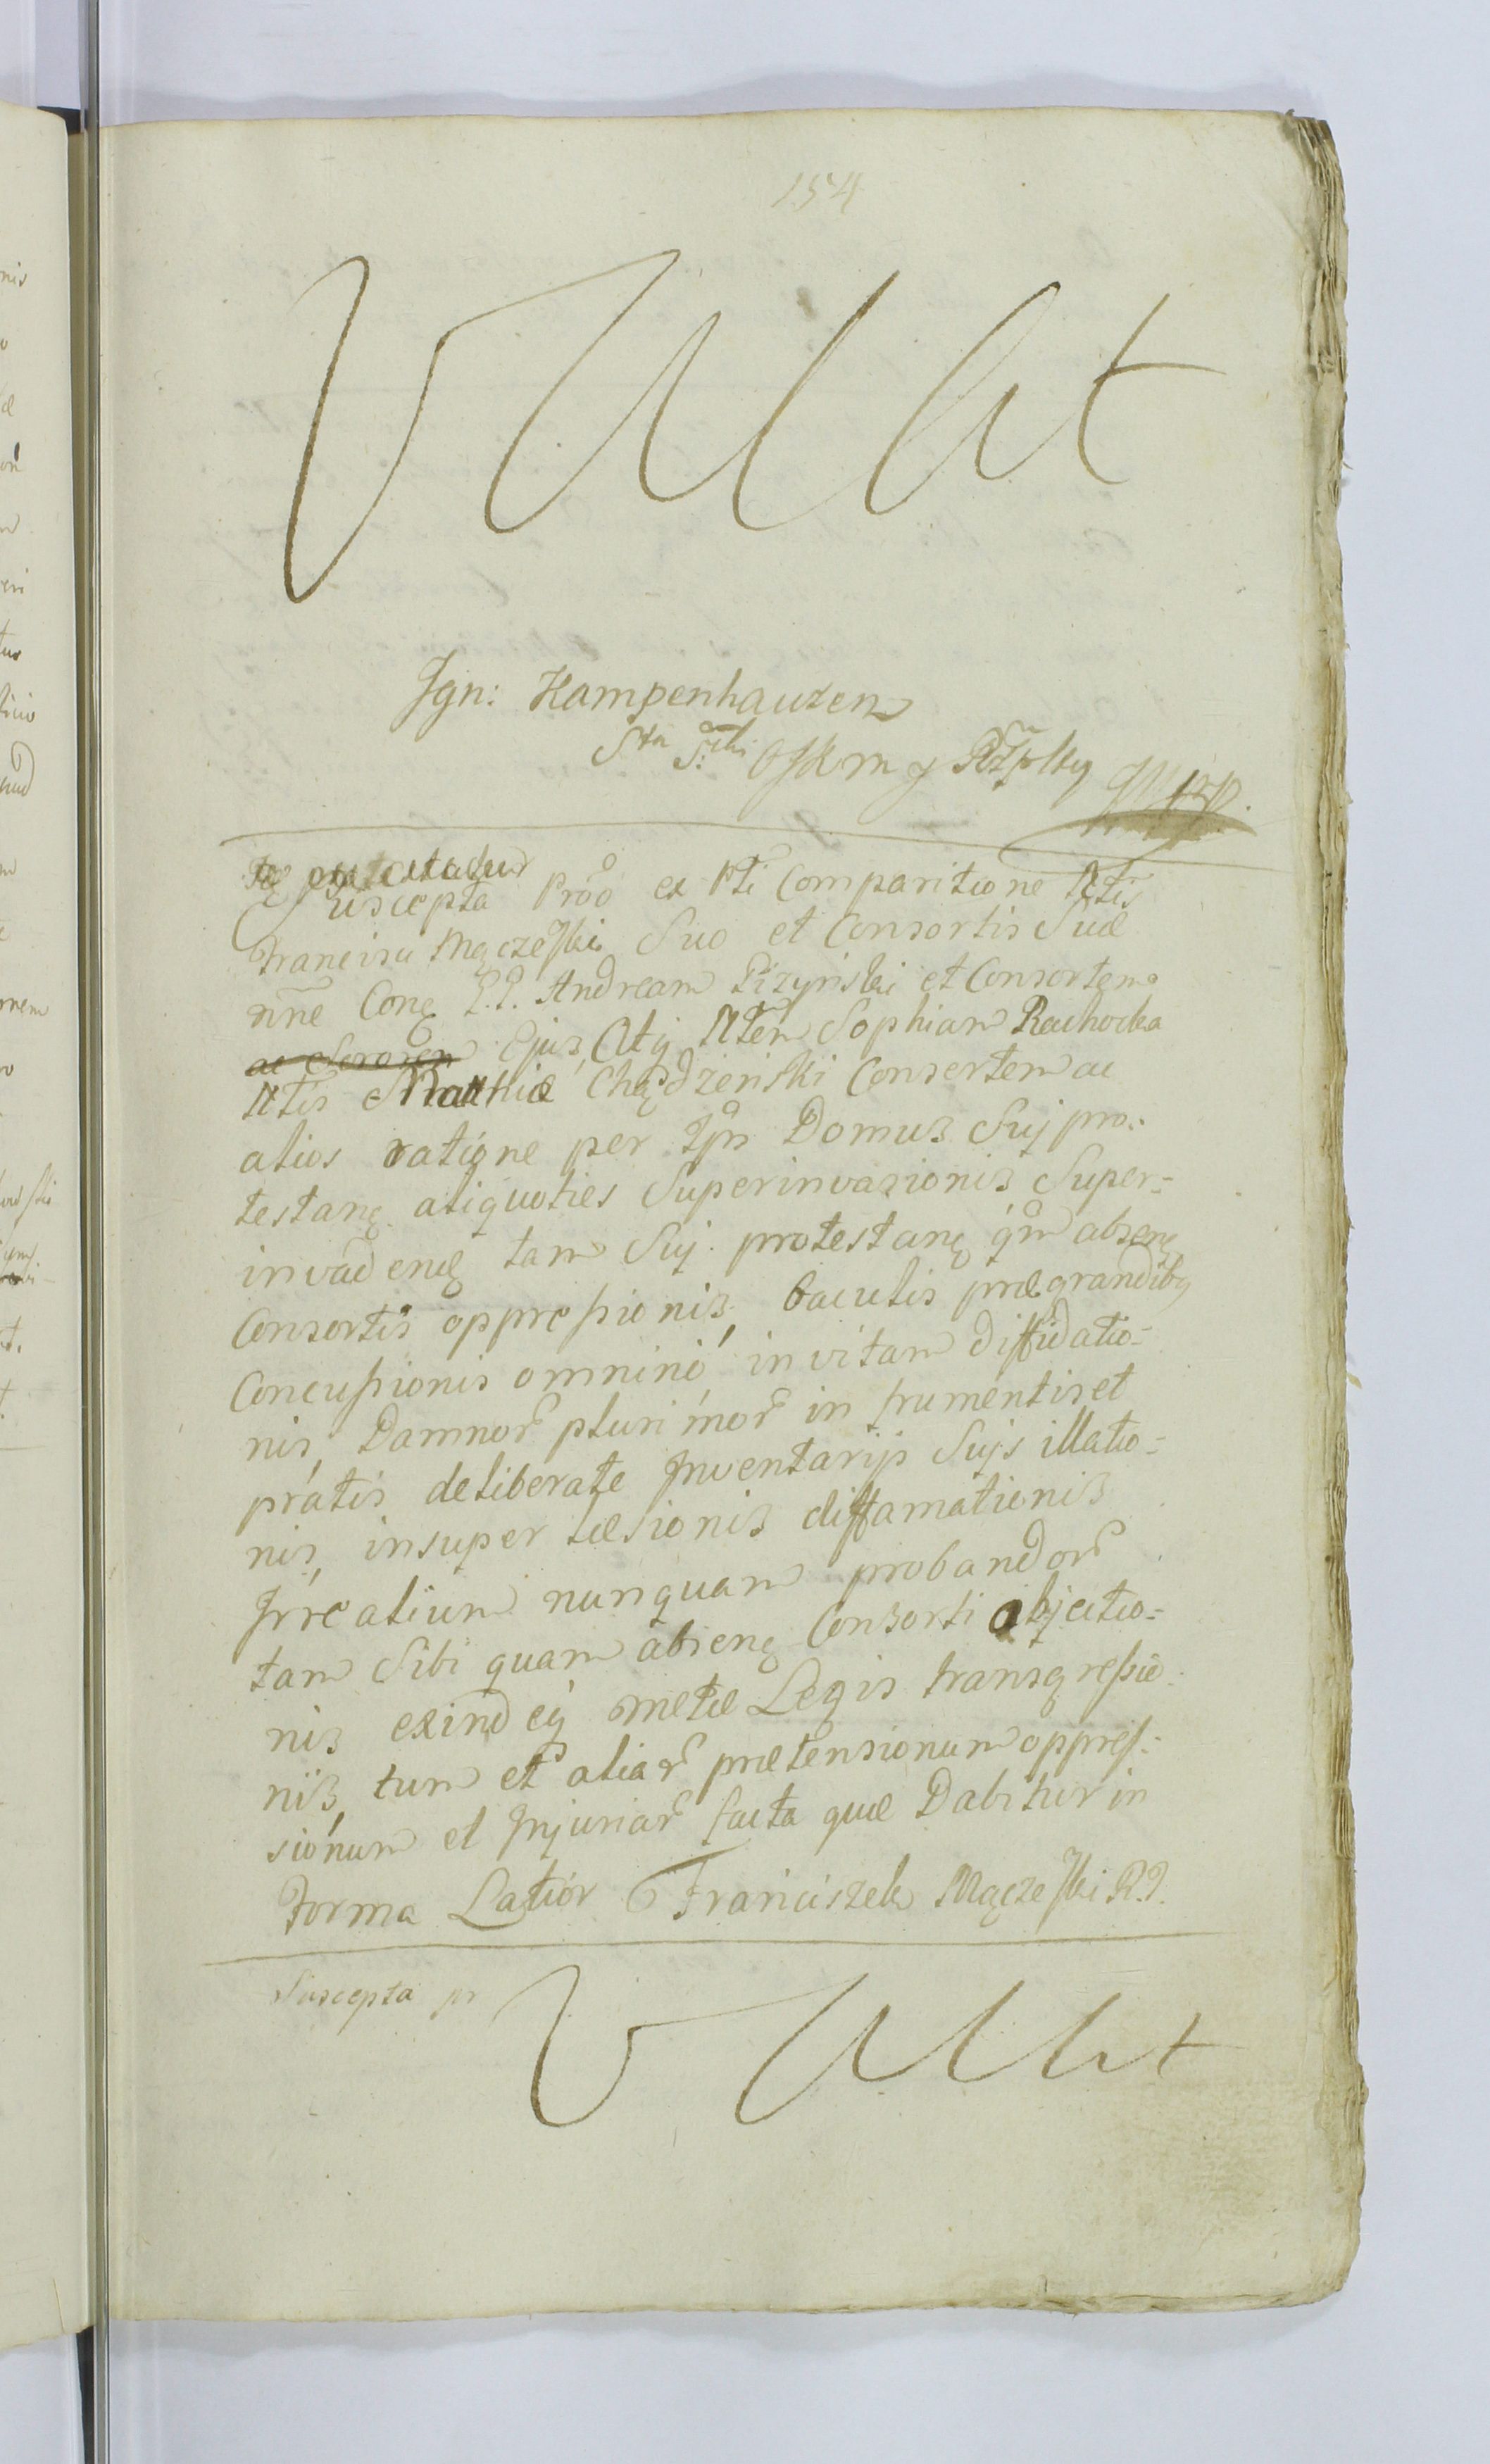 154
Vacat
Ign: Kampenhauzen
JKm y Rzplty
Suscepta Prõõ ex Pti Comparitione Ntis
Francisci Mączeski Suo et Consortis Suæ
nne Conę P.P. Andream Pizyński et Consortem
Ejus, Atq Ntem Sophiam Rachocka
Ntis Mathiæ Chądzeński Consortem ac
alios ratione per Ipm Domus Suj pro:
testanę aliquoties Superinvasionis Super:
invadenę tam Suj protestanę qm absenę
Consortis oppressionis, baculis prægrandibq
Concussionis omninó in vitam diffidatio:
nis, Damnor plurimor in frumentis et
pratis deliberate Inventarijs Sujs illatio:
nis, insuper læsionis diffamationis
Irrealium nunquam probandor
tam Sibi quam absenę Consorti objectio:
nis exindeq metæ Legis transgressio:
nis, tum et aliar prætensionum oppres:
sionum et Injuriar facta quæ Dabitur in
Forma Latior Franciszek Mączeski R.P.
Suscepta pr
Vacat